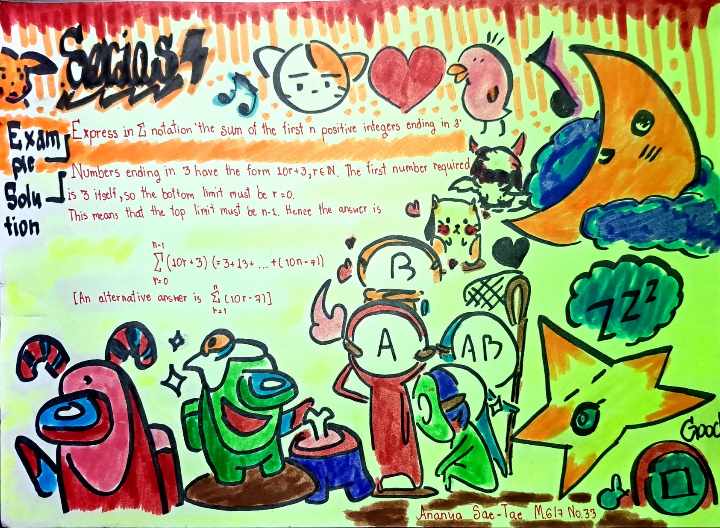 Series
Exam
ple
Express in Σ notation the sum of the first n positive integers ending in 3.
Solu
tion
Numbers ending in 3 have the form 10r+3, r∈N. The first number required
is 3 itself, so the bottom limit must be r=0.
This means that the top limit must be n-1. Hence the answer is
n-1
Σ (10r+3) (=3+13+ ... +(10n-7)
r=0
[An alternative answer is Σ (10r-7)]
n
r=1
B
A
AB
zzz
Good
Ananya Sae-Tae M.6/7 No.33